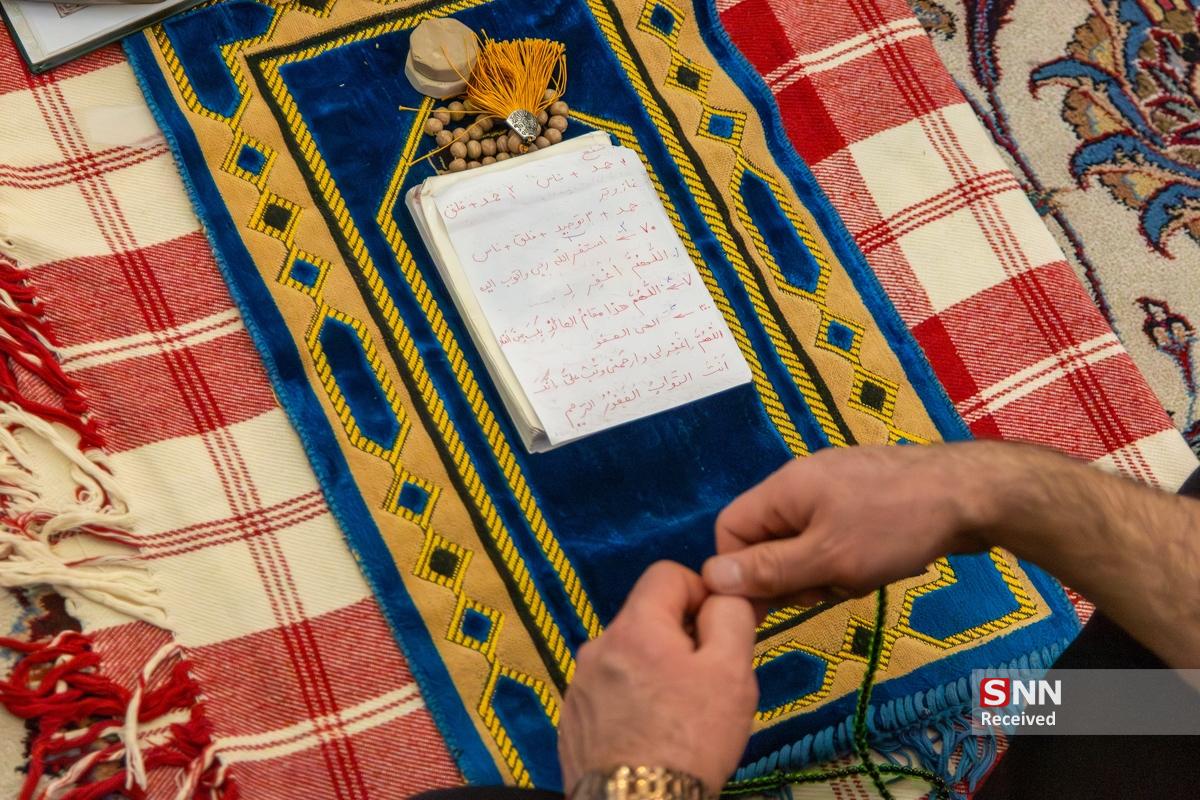 شفع
۱ حمد + ناس ۲ حمد + فلق
نماز وتر
حمد + ۳ توحید + فلق + ناس
۷۰ استغفر الله ربی و اتوب الیه
اللهُمَّ اغْفِر لِـ ....
۷ اللهُمَّ هذا مَقامُ العائِذِ بِکَ مِنَ النار
۳۰۰ الهی العفو
اللهُمَّ اغْفِر لی و ارحَمنی وَ تُبْ عَلَیَّ اِنَّکَ
اَنْتَ التَّوّابُ الغَفُورُ الرَّحیم
SNN
Received